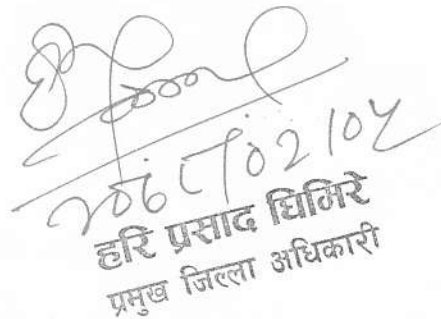 २०६८/०२/०५
हरि प्रसाद घिमिरे
प्रमुख जिल्ला अधिकारी